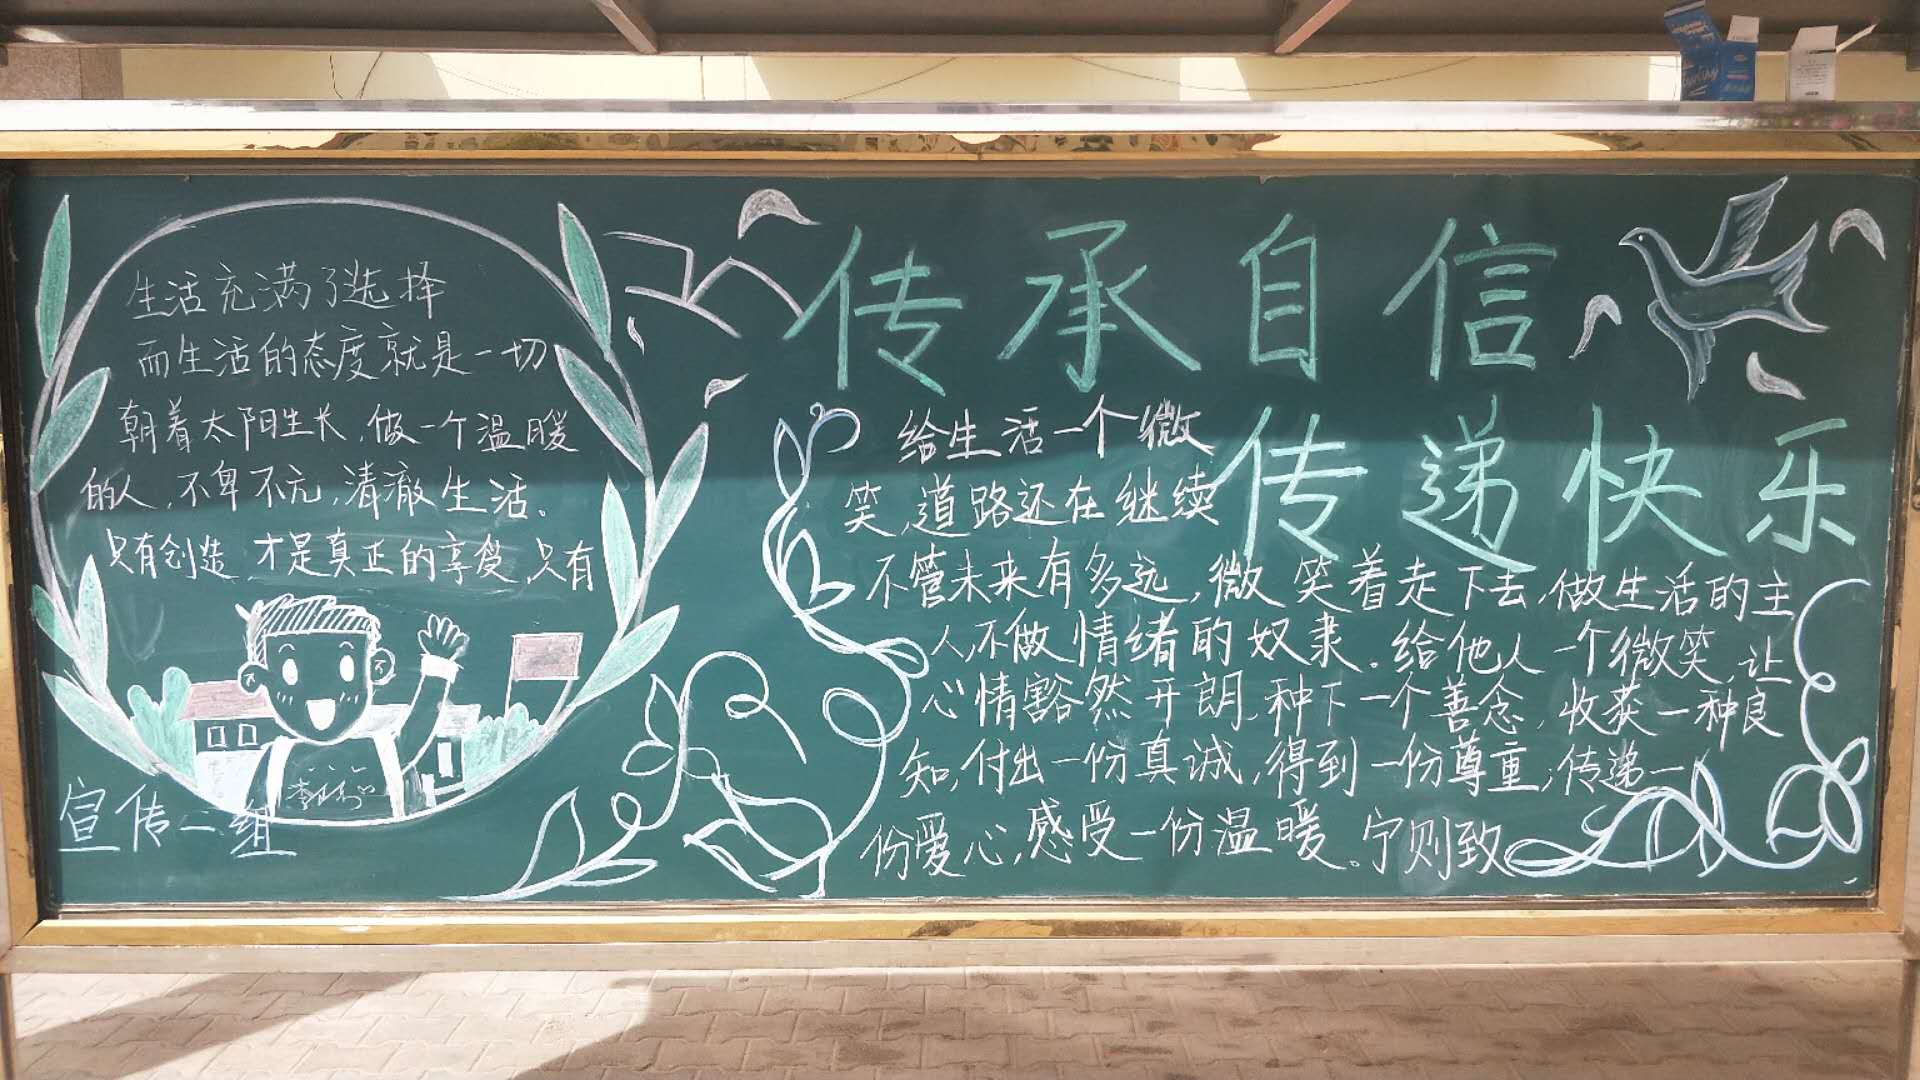 生活充满了选择
而生活的态度就是一切
朝着太阳生长,做一个温暖
的人,不卑不亢,清澈生活。
只有创造,才是真正的享受,只有
宣传一组
传承自信
传递快乐
给生活一个微
笑,道路还在继续
不管未来有多远,微笑着走下去,做生活的主
人,不做情绪的奴隶。给他人一个微笑,让
心情豁然开朗,种下一个善念,收获一种良
知,付出一份真诚,得到一份尊重,传递一
份爱心,感受一份温暖。宁则致